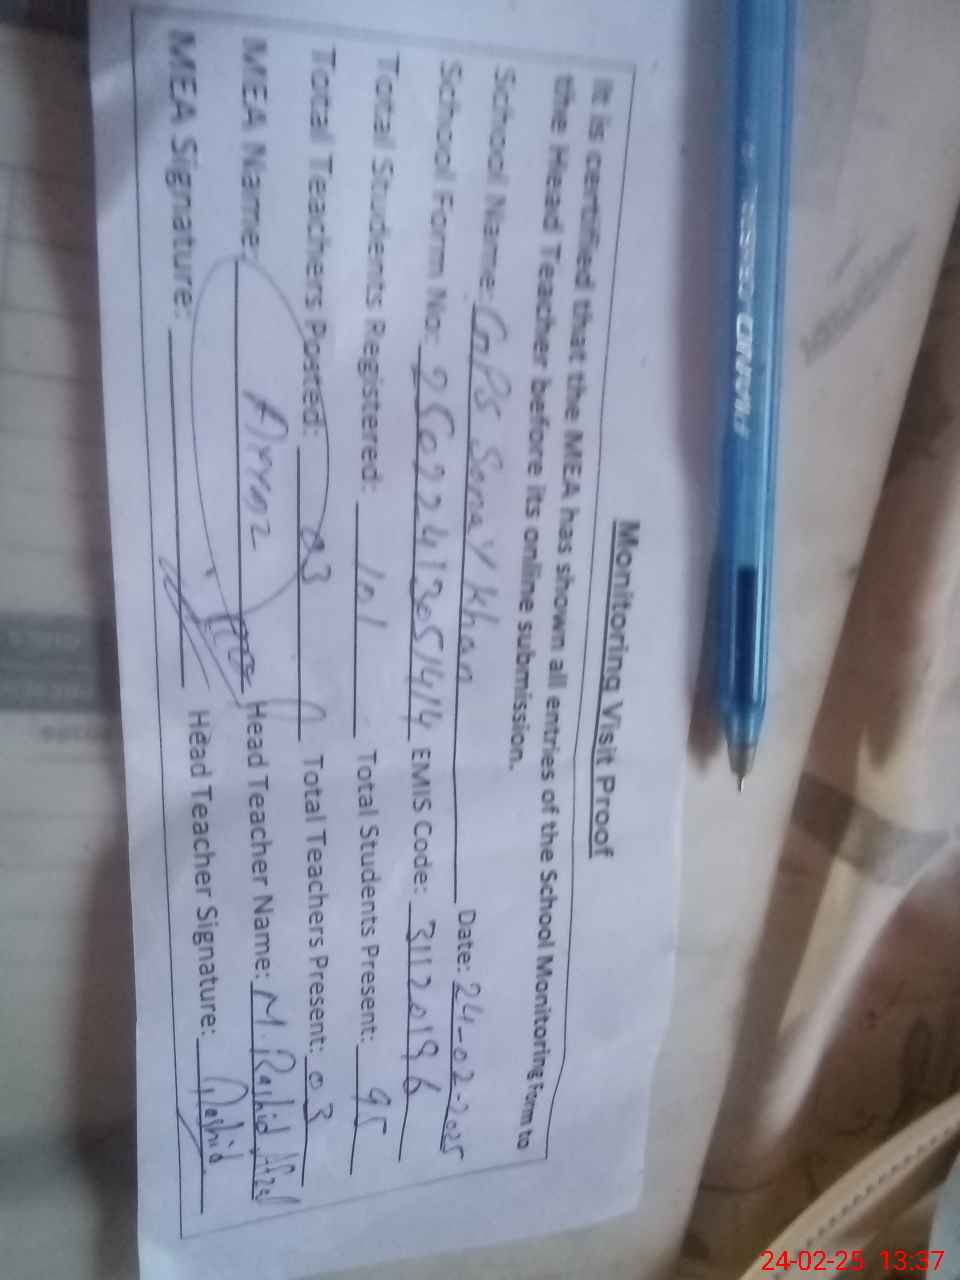 Monitoring Visit Proof
It is certified that the MEA has shown all entries of the School Monitoring Form to
the Head Teacher before its online submission.
School Name: GPS Seray Khan Date: 24-02-2025
School Form No: 25022413051414 EMIS Code: 31120196
Total Students Registered: 101 Total Students Present: 95
Total Teachers Posted: 03 Total Teachers Present: 03
MEA Name: Head Teacher Name: M. Rashid Afzal
MEA Signature: Head Teacher Signature: Rashid
PIANO
24-02-25 13:37